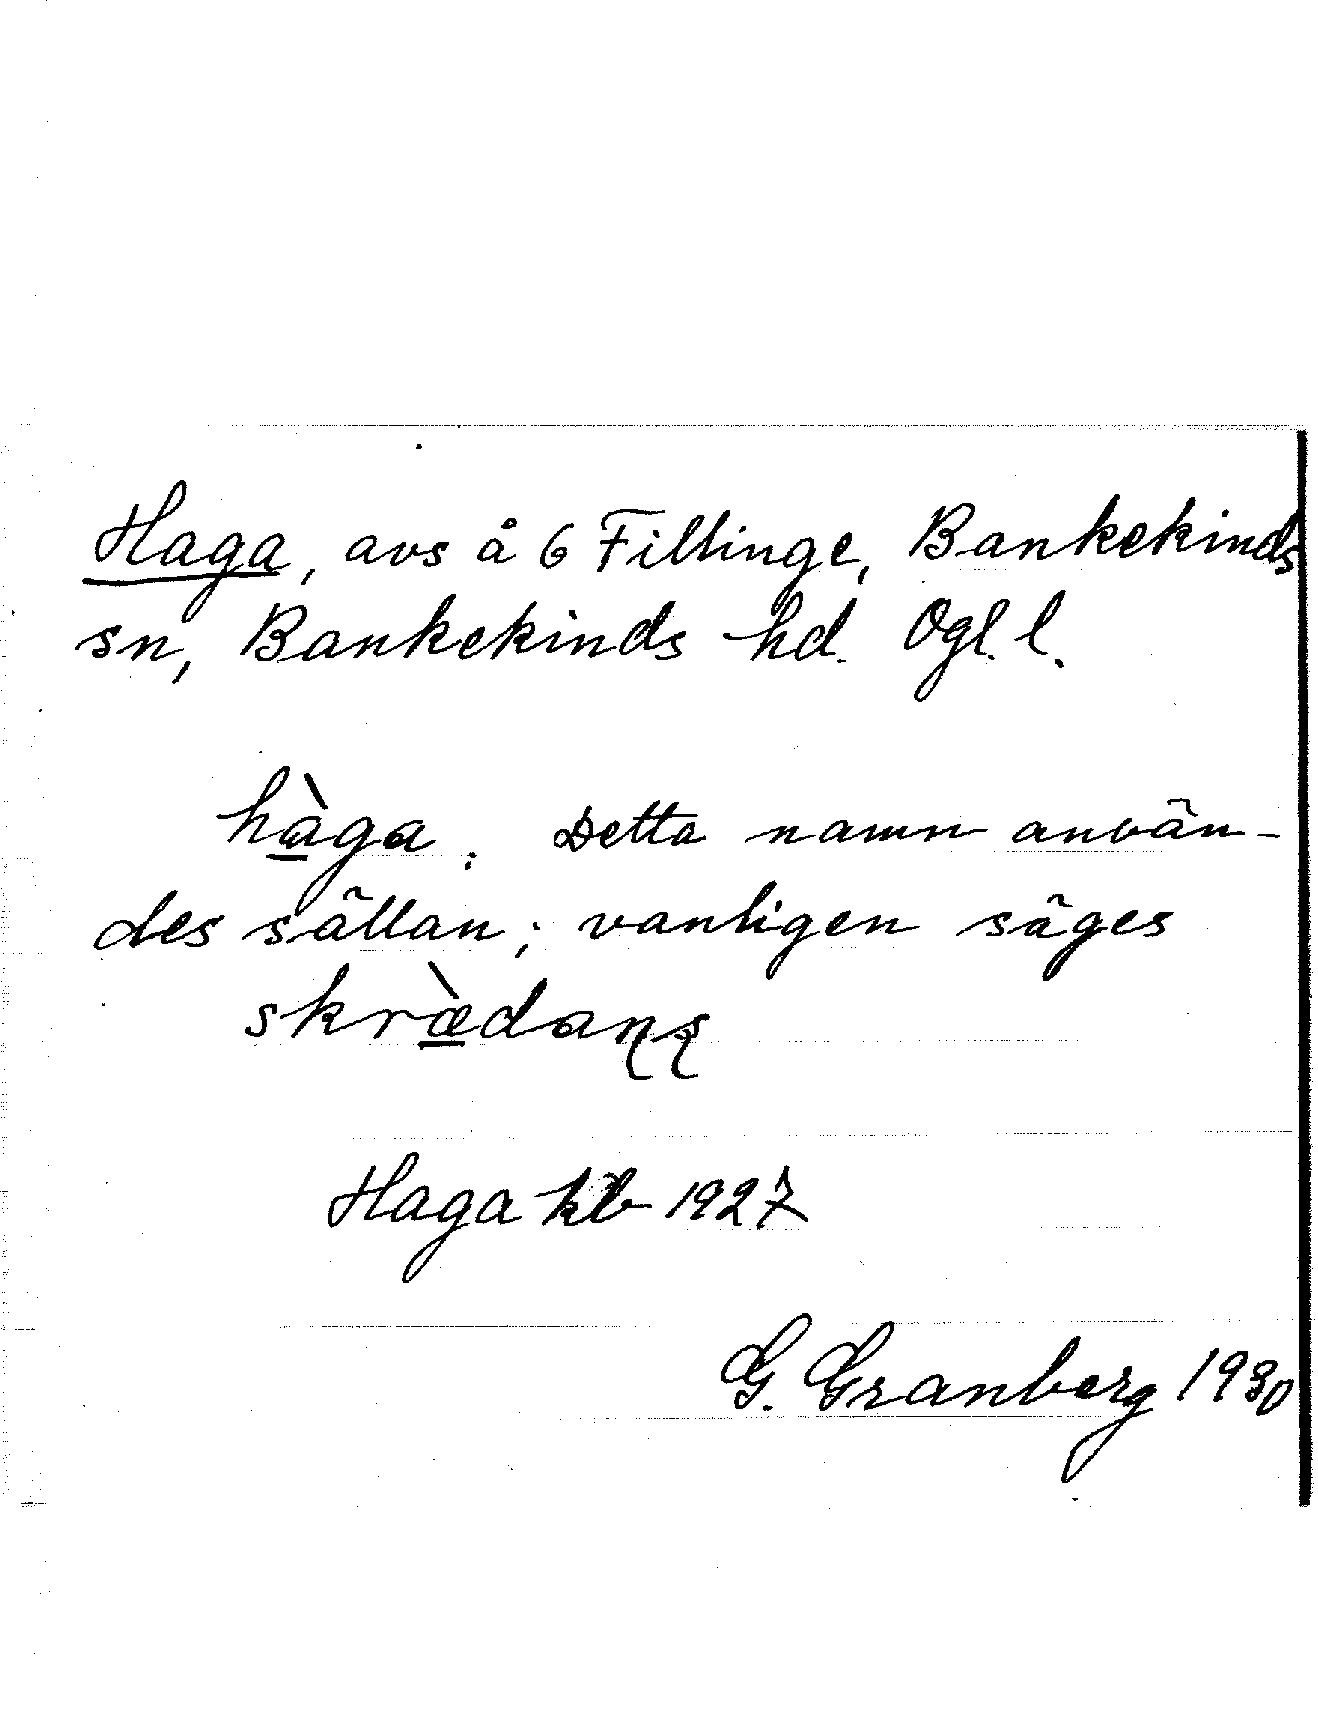 Haga, avs å 6 Fillinge, Bankekinds
sn, Bankekinds hd. Ögl. l.
hàga : Detta namn använ-
des sällan; vanligen säges
skrædaɳʂ
Haga kb 1927
G. Granberg 1930